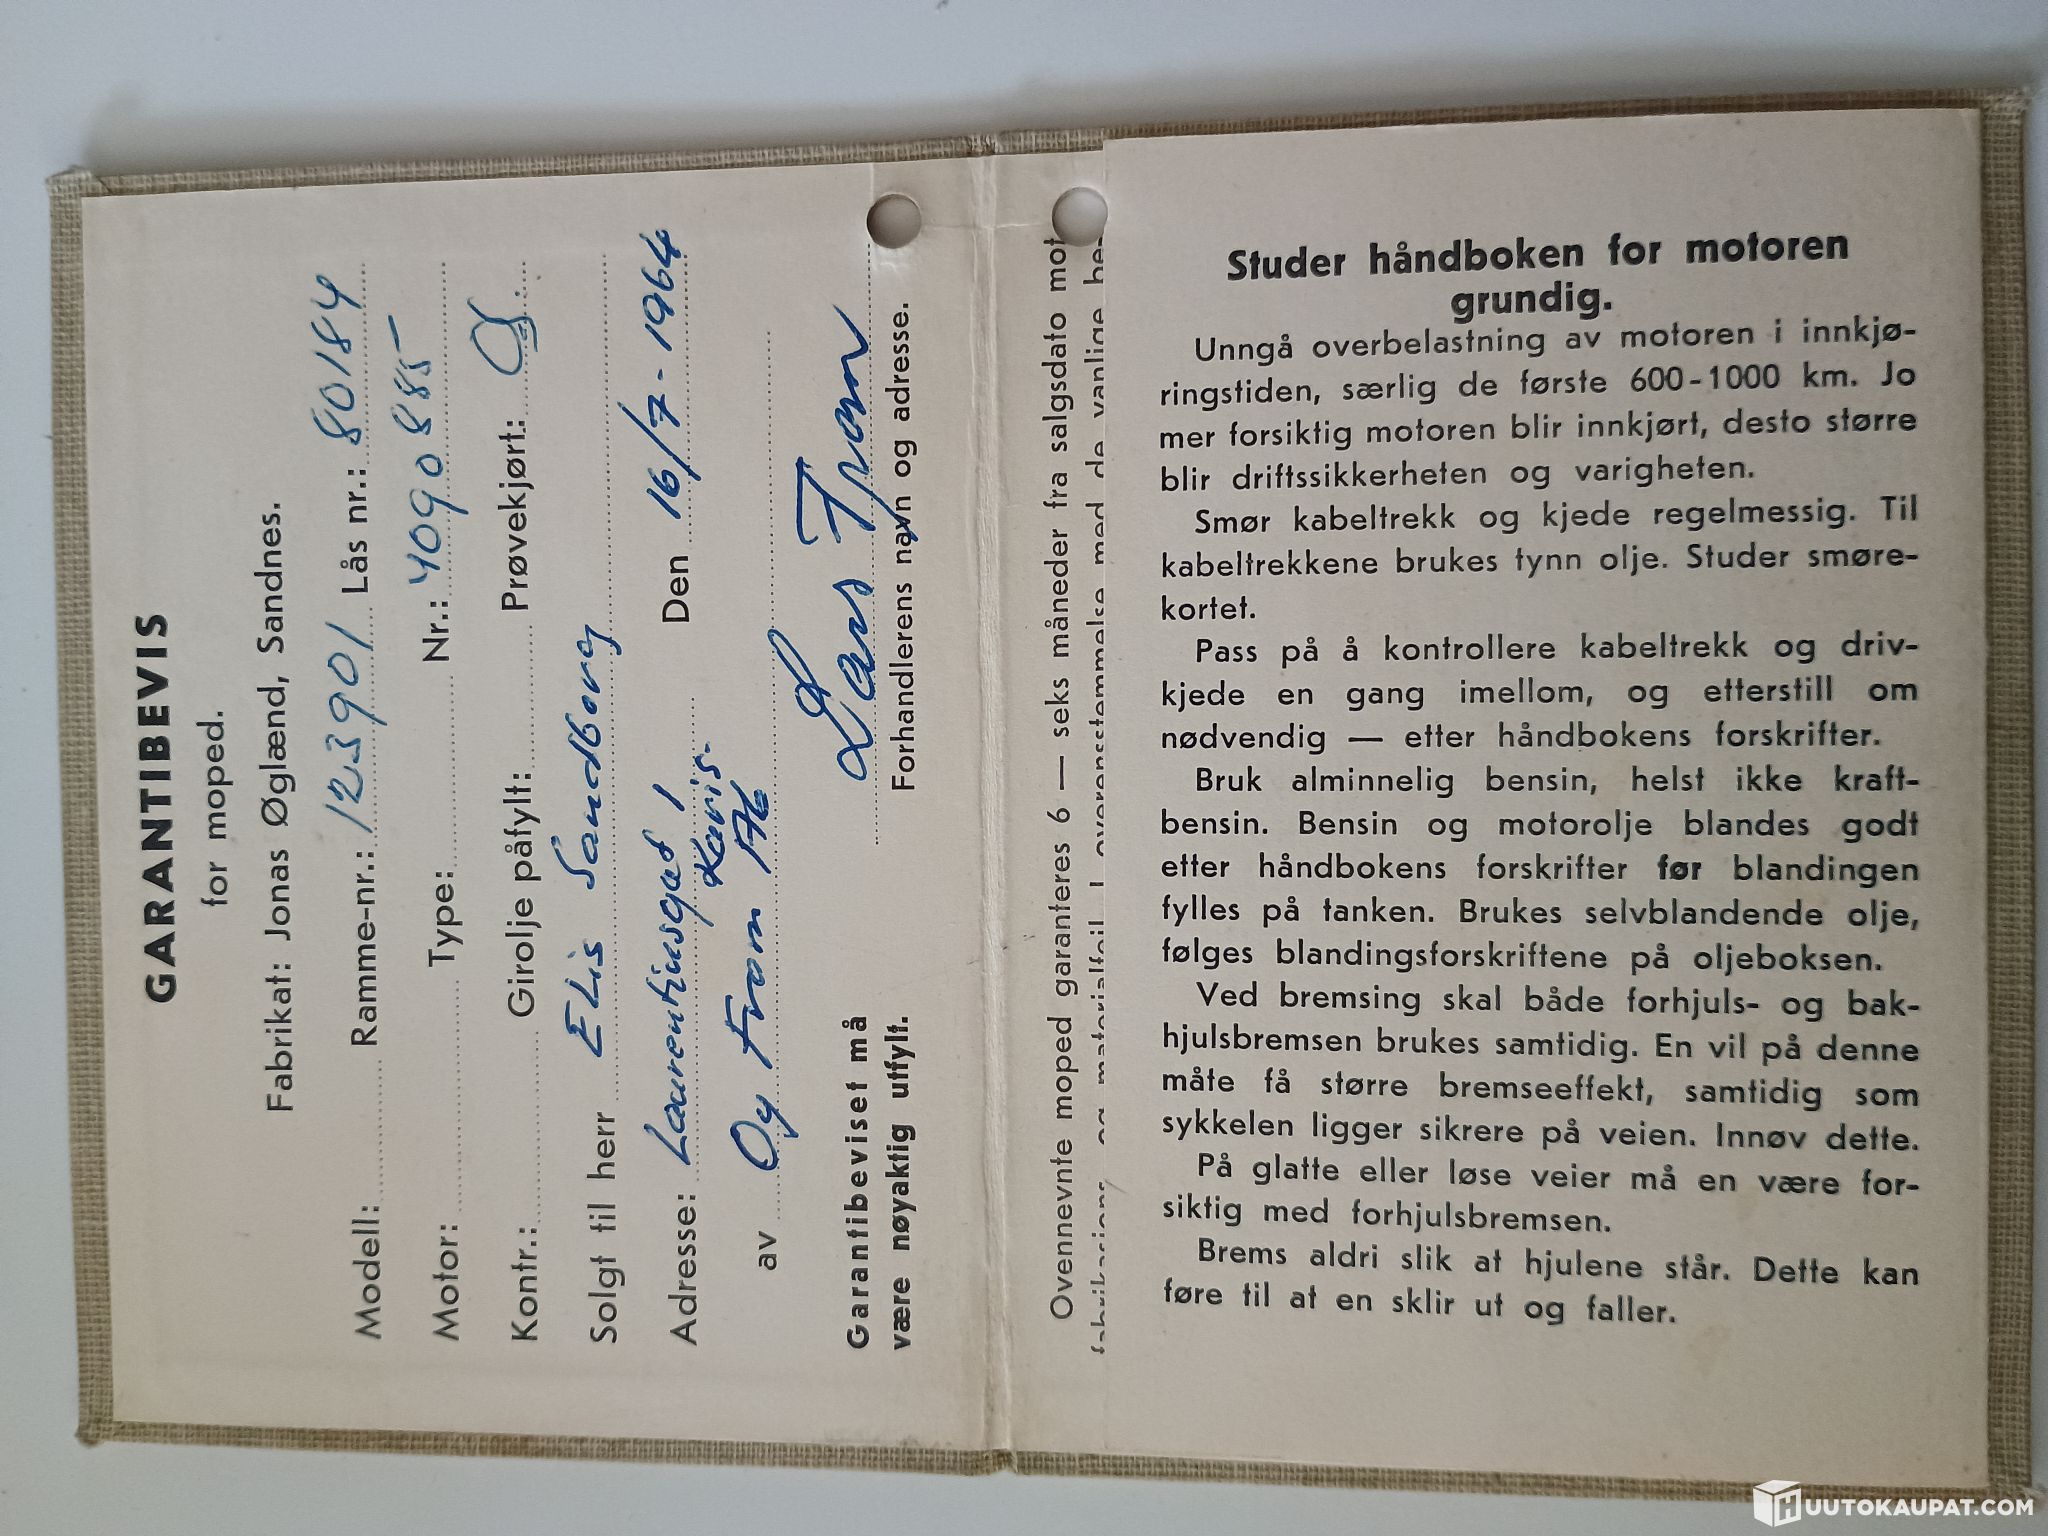 GARANTIBEVIS
for moped.
Fabrikat: Jonas Øglænd, Sandnes.
Modell: Ramme-nr.: 123901 Lås nr.: 80184
Motor: Type: Nr.: 4090885
Kontr.: Girolje påfylt: Prøvekjørt:
Solgt til herr Elis Sandborg
Adresse: Laurentiusgat 1 Den 16/7-1964
Karis.
av Oy From Ab
Lars From
Garantibeviset må
være nøyaktig utfylt.
Forhandlerens navn og adresse.
Ovennevnte moped garanteres 6 — seks måneder fra salgsdato mot
fabrikasjons og materialfeil I overensstemmelse med de vanlige be-
Studer håndboken for motoren
grundig.
Unngå overbelastning av motoren i innkjø-
ringstiden, særlig de første 600-1000 km. Jo
mer forsiktig motoren blir innkjørt, desto større
blir driftssikkerheten og varigheten.
Smør kabeltrekk og kjede regelmessig. Til
kabeltrekkene brukes tynn olje. Studer smøre-
kortet.
Pass på å kontrollere kabeltrekk og driv-
kjede en gang imellom, og etterstill om
nødvendig — etter håndbokens forskrifter.
Bruk alminnelig bensin, helst ikke kraft-
bensin. Bensin og motorolje blandes godt
etter håndbokens forskrifter før blandingen
fylles på tanken. Brukes selvblandende olje,
følges blandingsforskriftene på oljeboksen.
Ved bremsing skal både forhjuls- og bak-
hjulsbremsen brukes samtidig. En vil på denne
måte få større bremseeffekt, samtidig som
sykkelen ligger sikrere på veien. Innøv dette.
På glatte eller løse veier må en være for-
siktig med forhjulsbremsen.
Brems aldri slik at hjulene står. Dette kan
føre til at en sklir ut og faller.
HUUTOKAUPAT.COM